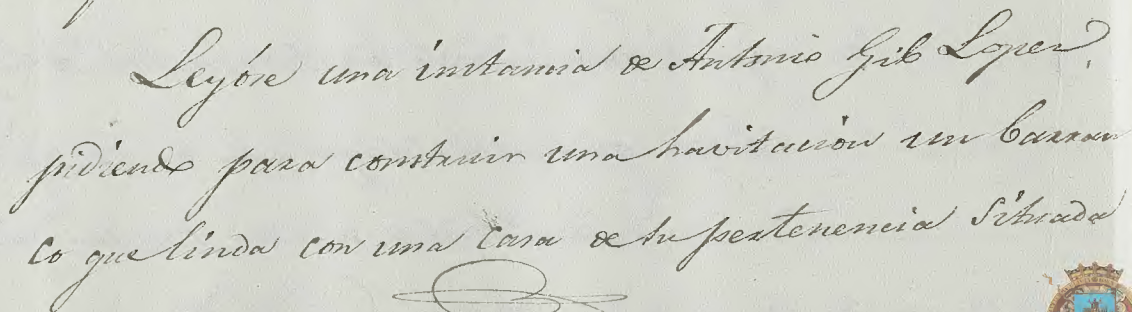 Leyóse una instancia de Antonio Gil Lopez,
pidiendo para construir una havitación un barran
co que linda con una casa de su pertenencia situada